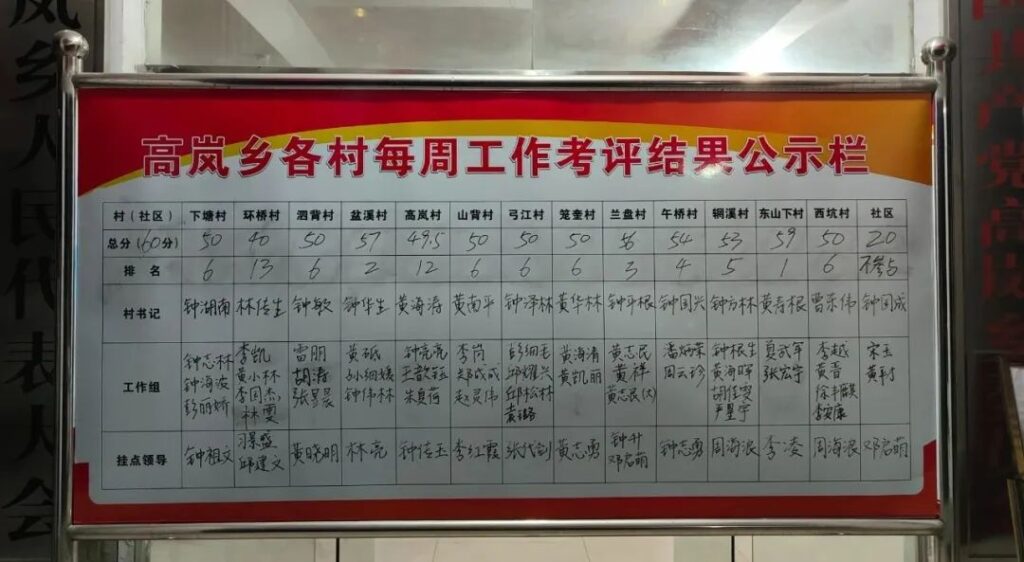 高岚乡各村每周工作考评结果公示栏
村（社区） 下塘村 环桥村 泗背村 盆溪村 高岚村 山背村 弓江村 笼奎村 兰盘村 午桥村 铜溪村 东山下村 西坑村 社区
总分（60分） 50 40 50 57 49.5 50 50 50 56 54 53 59 50 20
排名 6 13 6 2 12 6 6 6 3 4 5 1 6 不参与
村书记 钟湖南 林传生 钟敏 钟华生 黄海涛 黄南平 钟泽林 黄华林 钟平根 钟国兴 钟方林 黄寿根 曾乐伟 钟国成
钟志林 李凯 雷朋 黄砥 钟亮亮 李岗 彭细毛 黄海清 黄志民 潘炳荣 钟根生 夏武军 李越 宋玉
工作组 钟海波 黄小林 胡涛 孙细媛 王歆钰 郑成成 邱耀兴 黄凯丽 黄祥 周云珍 黄海晖 张宏宇 黄音 黄利
彭丽娇 李国杰 张昱晨 钟伟林 朱夏荷 赵灵伟 邱松林 黄志民(大) 胡佳雯
林雯 袁璐 严星宇
习景盛 钟升
挂点领导 钟祖文 邱建文 黄晓明 林亮 钟传玉 李红霞 黄志勇 邓启萌 钟志勇 周海浪 李凌 周海浪 邓启萌
乡人民代表大会
共产党高岚乡